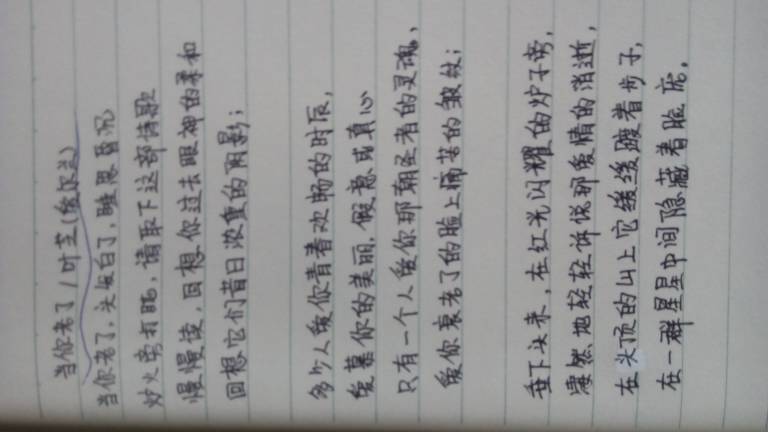 当你老了/叶芝(爱尔兰)
当你老了，头发白了，睡思昏沉
炉火旁打盹，请取下这部诗歌
慢慢读，回想你过去眼神的柔和
回想它们昔日浓重的阴影；
多少人爱你青春欢畅的时辰，
爱慕你的美丽，假意或真心
只有一个人爱你那朝圣者的灵魂、
爱你衰老了的脸上痛苦的皱纹；
垂下头来，在红光闪耀的炉子旁，
凄然地轻轻诉说那爱情的消逝，
在头顶的山上它缓缓踱着步子，
在一群星星中间隐藏着脸庞。